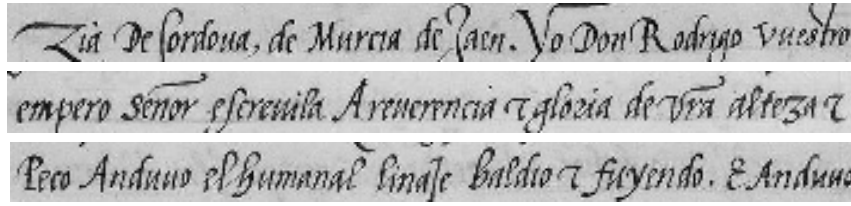 Zia De Cordoua, de Murcia de Jaen. Yo Don Rodrigo vuestro
empero Señor escreuila A reuerencia τ gloria de vr̃a alteza τ
Peco Anduuo el humanal linaje baldio τ fuyendo. & Anduuo